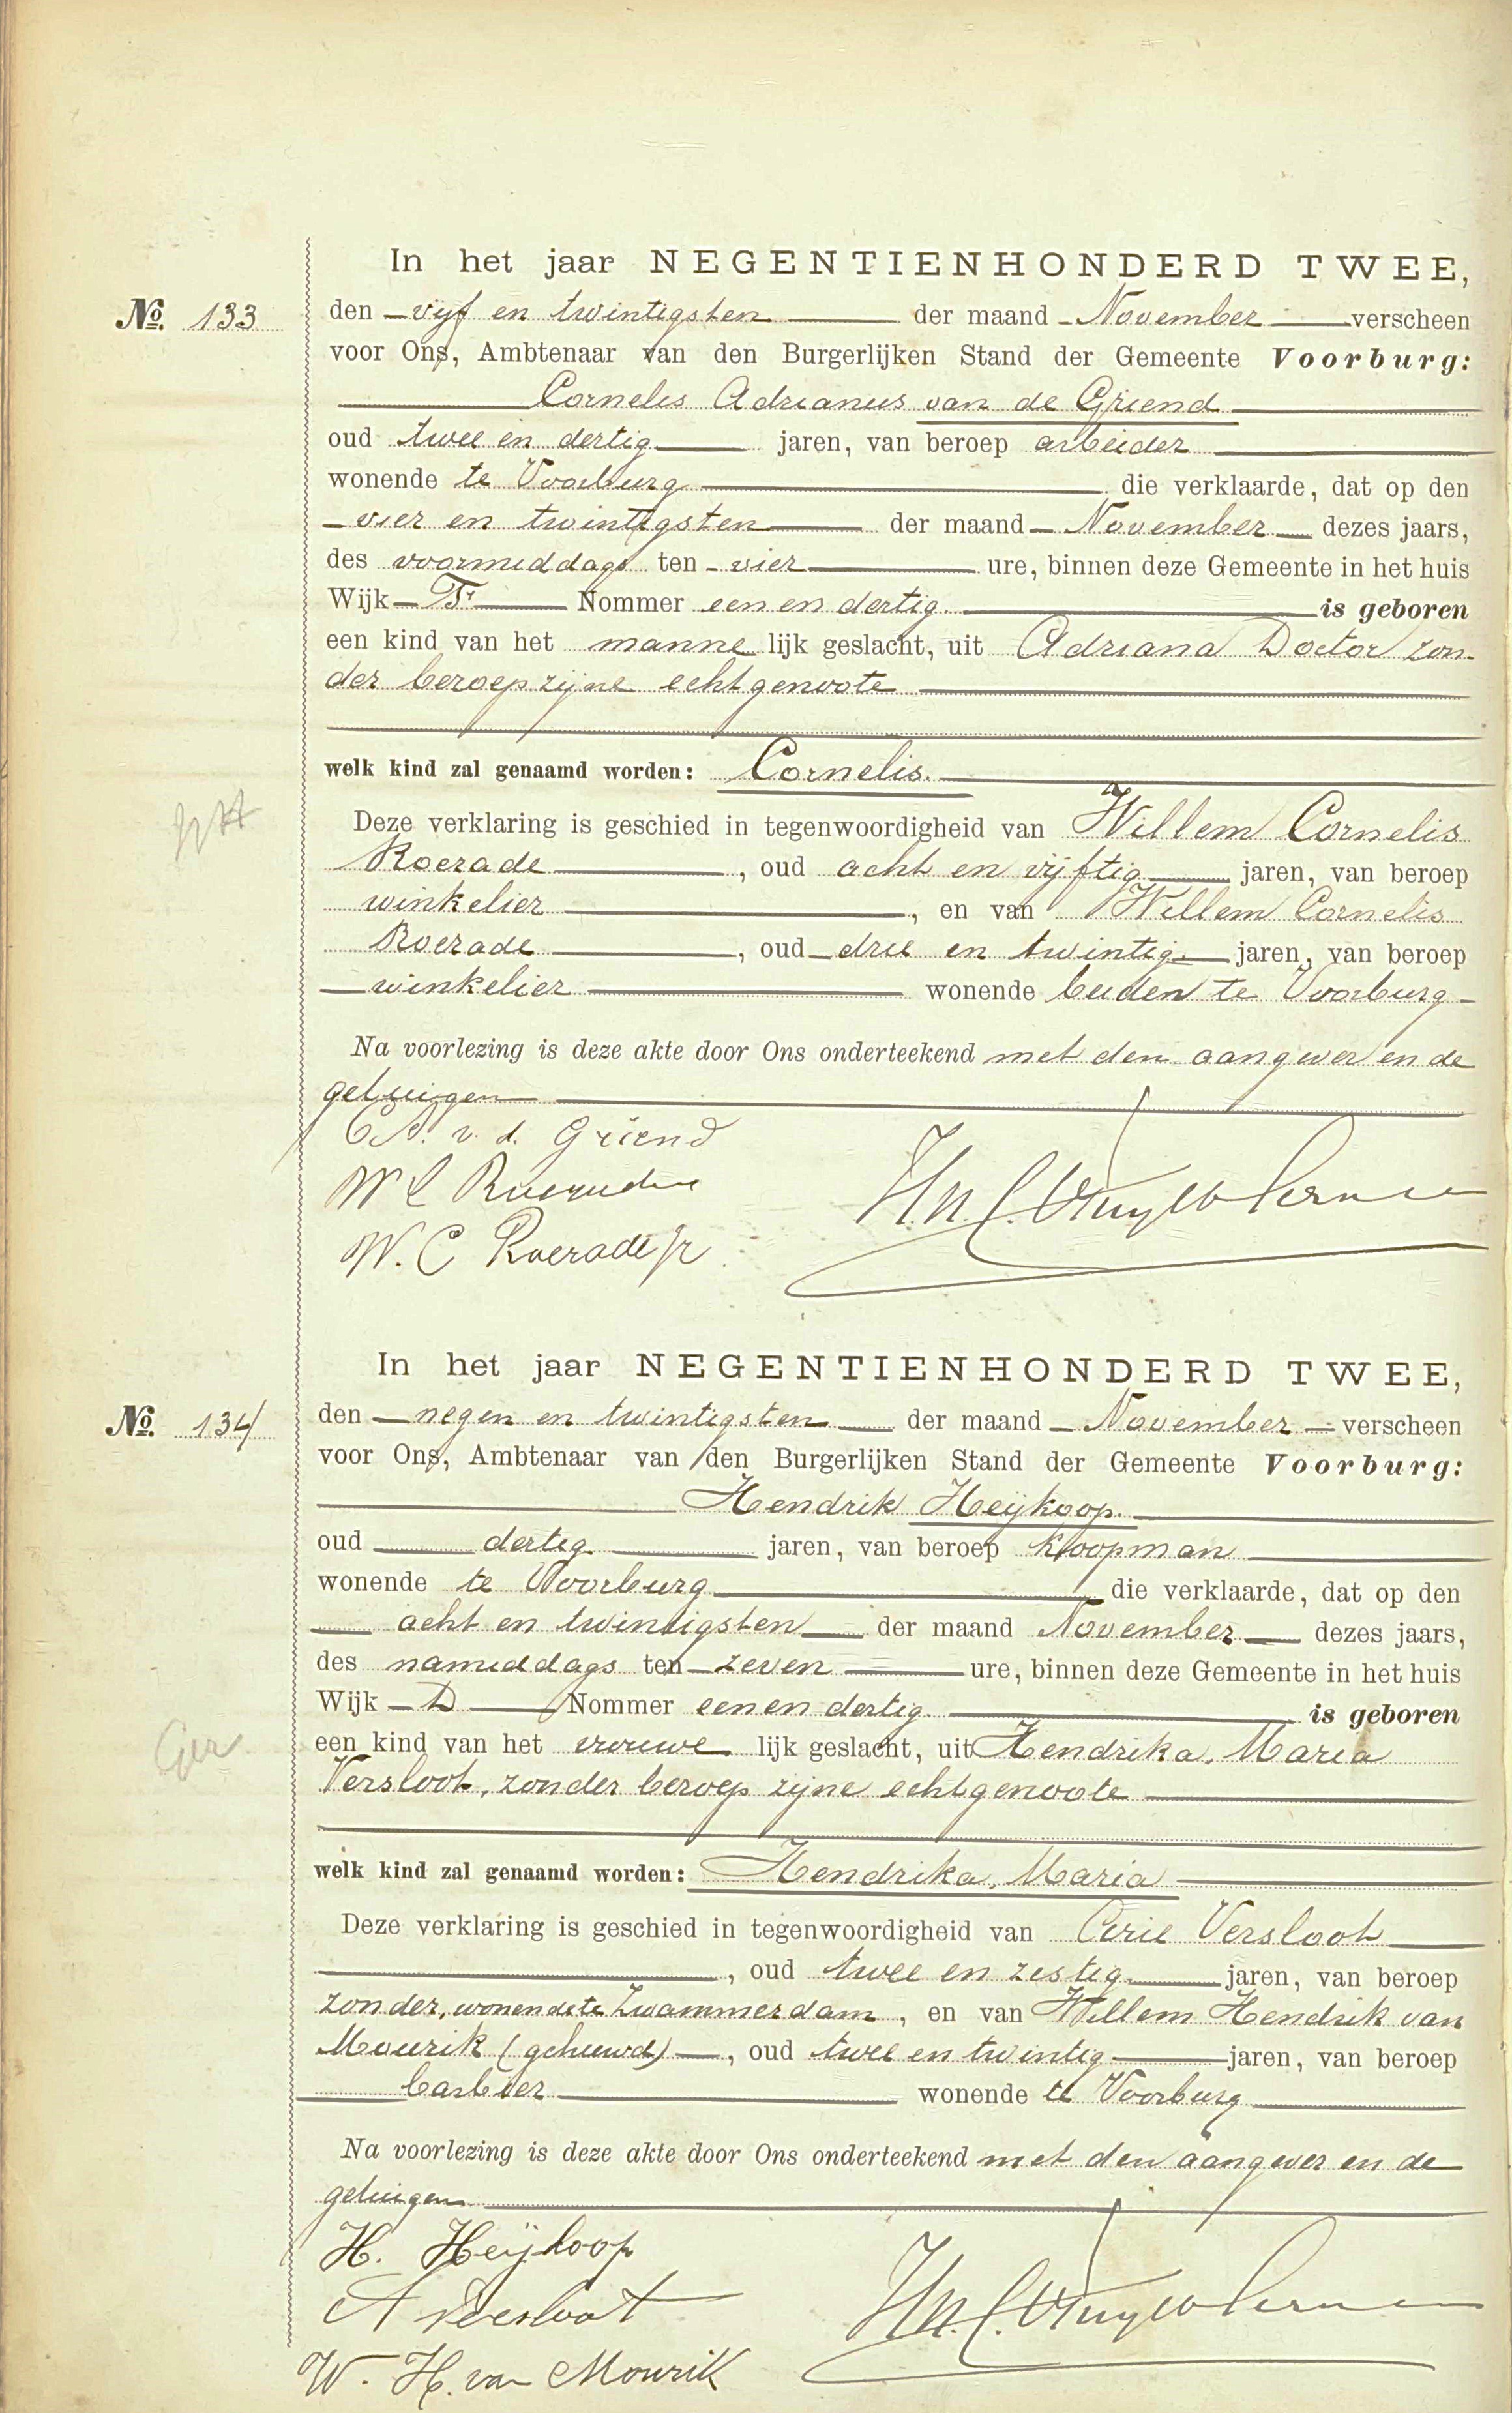 In het jaar NEGENTIENHONDERD TWEE,
No. 133 den vijf en twintigsten der maand November verscheen
voor Ons, Ambtenaar van den Burgerlijken Stand der Gemeente Voorburg:
Cornelis Adrianus van de Griend
oud twee en dertig jaren, van beroep arbeider
wonende te Voorburg die verklaarde, dat op den
vier en twintigsten der maand November dezes jaars,
des voormiddags ten vier ure, binnen deze Gemeente in het huis
Wijk Nommer een en dertig is geboren
een kind van het mannelijk geslacht, uit Adriana Doctor zon-
der beroep zijne echtgenoote
welk kind zal genaamd worden: Cornelis.
Deze verklaring is geschied in tegenwoordigheid van Willem Cornelis
Roerade, oud acht en vijftig jaren, van beroep
winkelier, en van Willem Cornelis
Roerade, oud drie en twintig jaren, van beroep
winkelier wonende beiden te Voorburg
Na voorlezing is deze akte door Ons onderteekend met den aangever en de
getuigen
C A. v. d. Griend
W C Roerade
W. C Roerade jr
In het jaar NEGENTIENHONDERD TWEE,
No. 134 den negen en twintigsten der maand November verscheen
voor Ons, Ambtenaar van den Burgerlijken Stand der Gemeente Voorburg:
Hendrik Heijkoop.
oud dertig jaren, van beroep koopman
wonende te Voorburg die verklaarde, dat op den
acht en twintigsten der maand November dezes jaars,
des namiddags ten zeven ure, binnen deze Gemeente in het huis
Wijk D Nommer een en dertig is geboren
een kind van het vrouwelijk geslacht, uit Hendrika, Maria
Versloot, zonder beroep zijne echtgenoote
welk kind zal genaamd worden: Hendrika, Maria
Deze verklaring is geschied in tegenwoordigheid van Arie Versloot
, oud twee en zestig jaren, van beroep
zonder, wonende te Zwammerdam, en van Willem Hendrik van
Mourik (gehuwd), oud twee en twintig jaren, van beroep
barbier wonende te Voorburg
Na voorlezing is deze akte door Ons onderteekend met den aangever en de
getuigen
H. Heijkoop
A Versloot
W. H. van Mourik